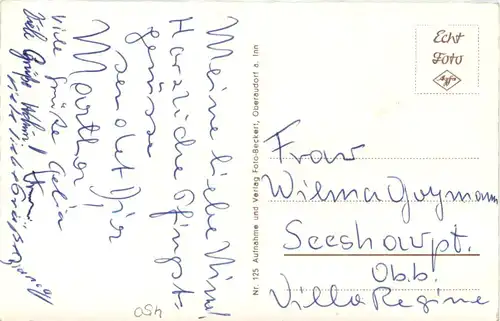 Meine liebe Minni!
Herzliche Pfingst=
grüsse
sendet Dir
Martha!
Viele Grüße Gelia
Viele Grüße
viele liebe Grüße
Nr. 125 Aufnahme und Verlag Foto-Beckert, Oberaudorf a. Inn
Echt
Foto
Agfa
Frau
Wilma Guymann
Seeshaupt.
Ob.b.
Villa Regine
450